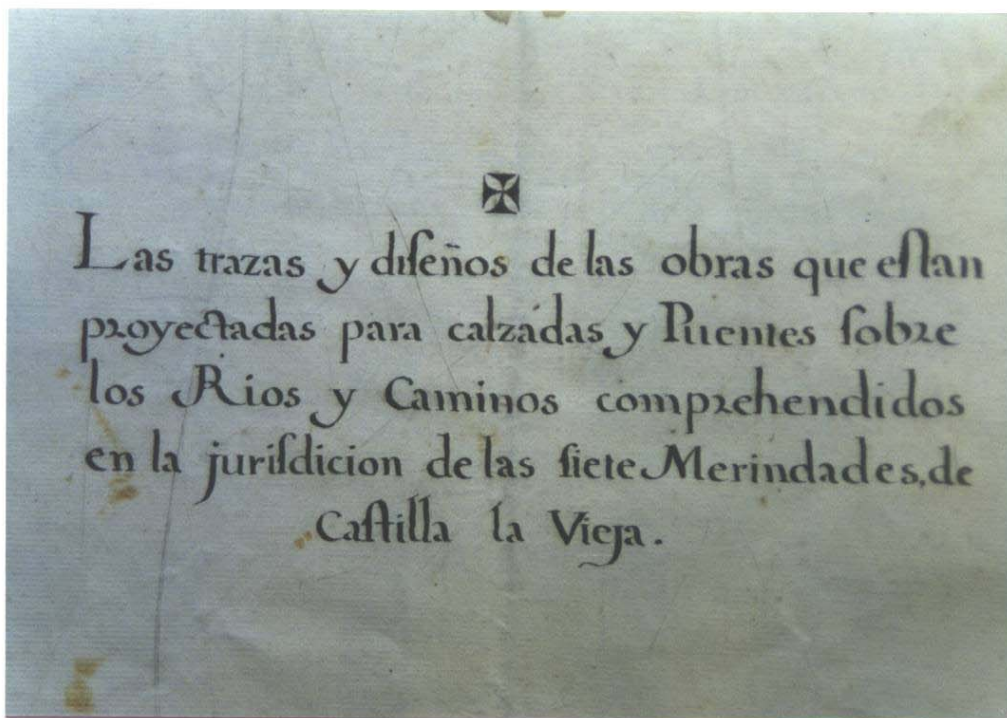 Las trazas y diseños de las obras que estan
proyectadas para calzádas y Puentes sobre
los Rios y Caminos comprehendidos
en la jurisdicion de las siete Merindades, de
Castilla la Vieja.